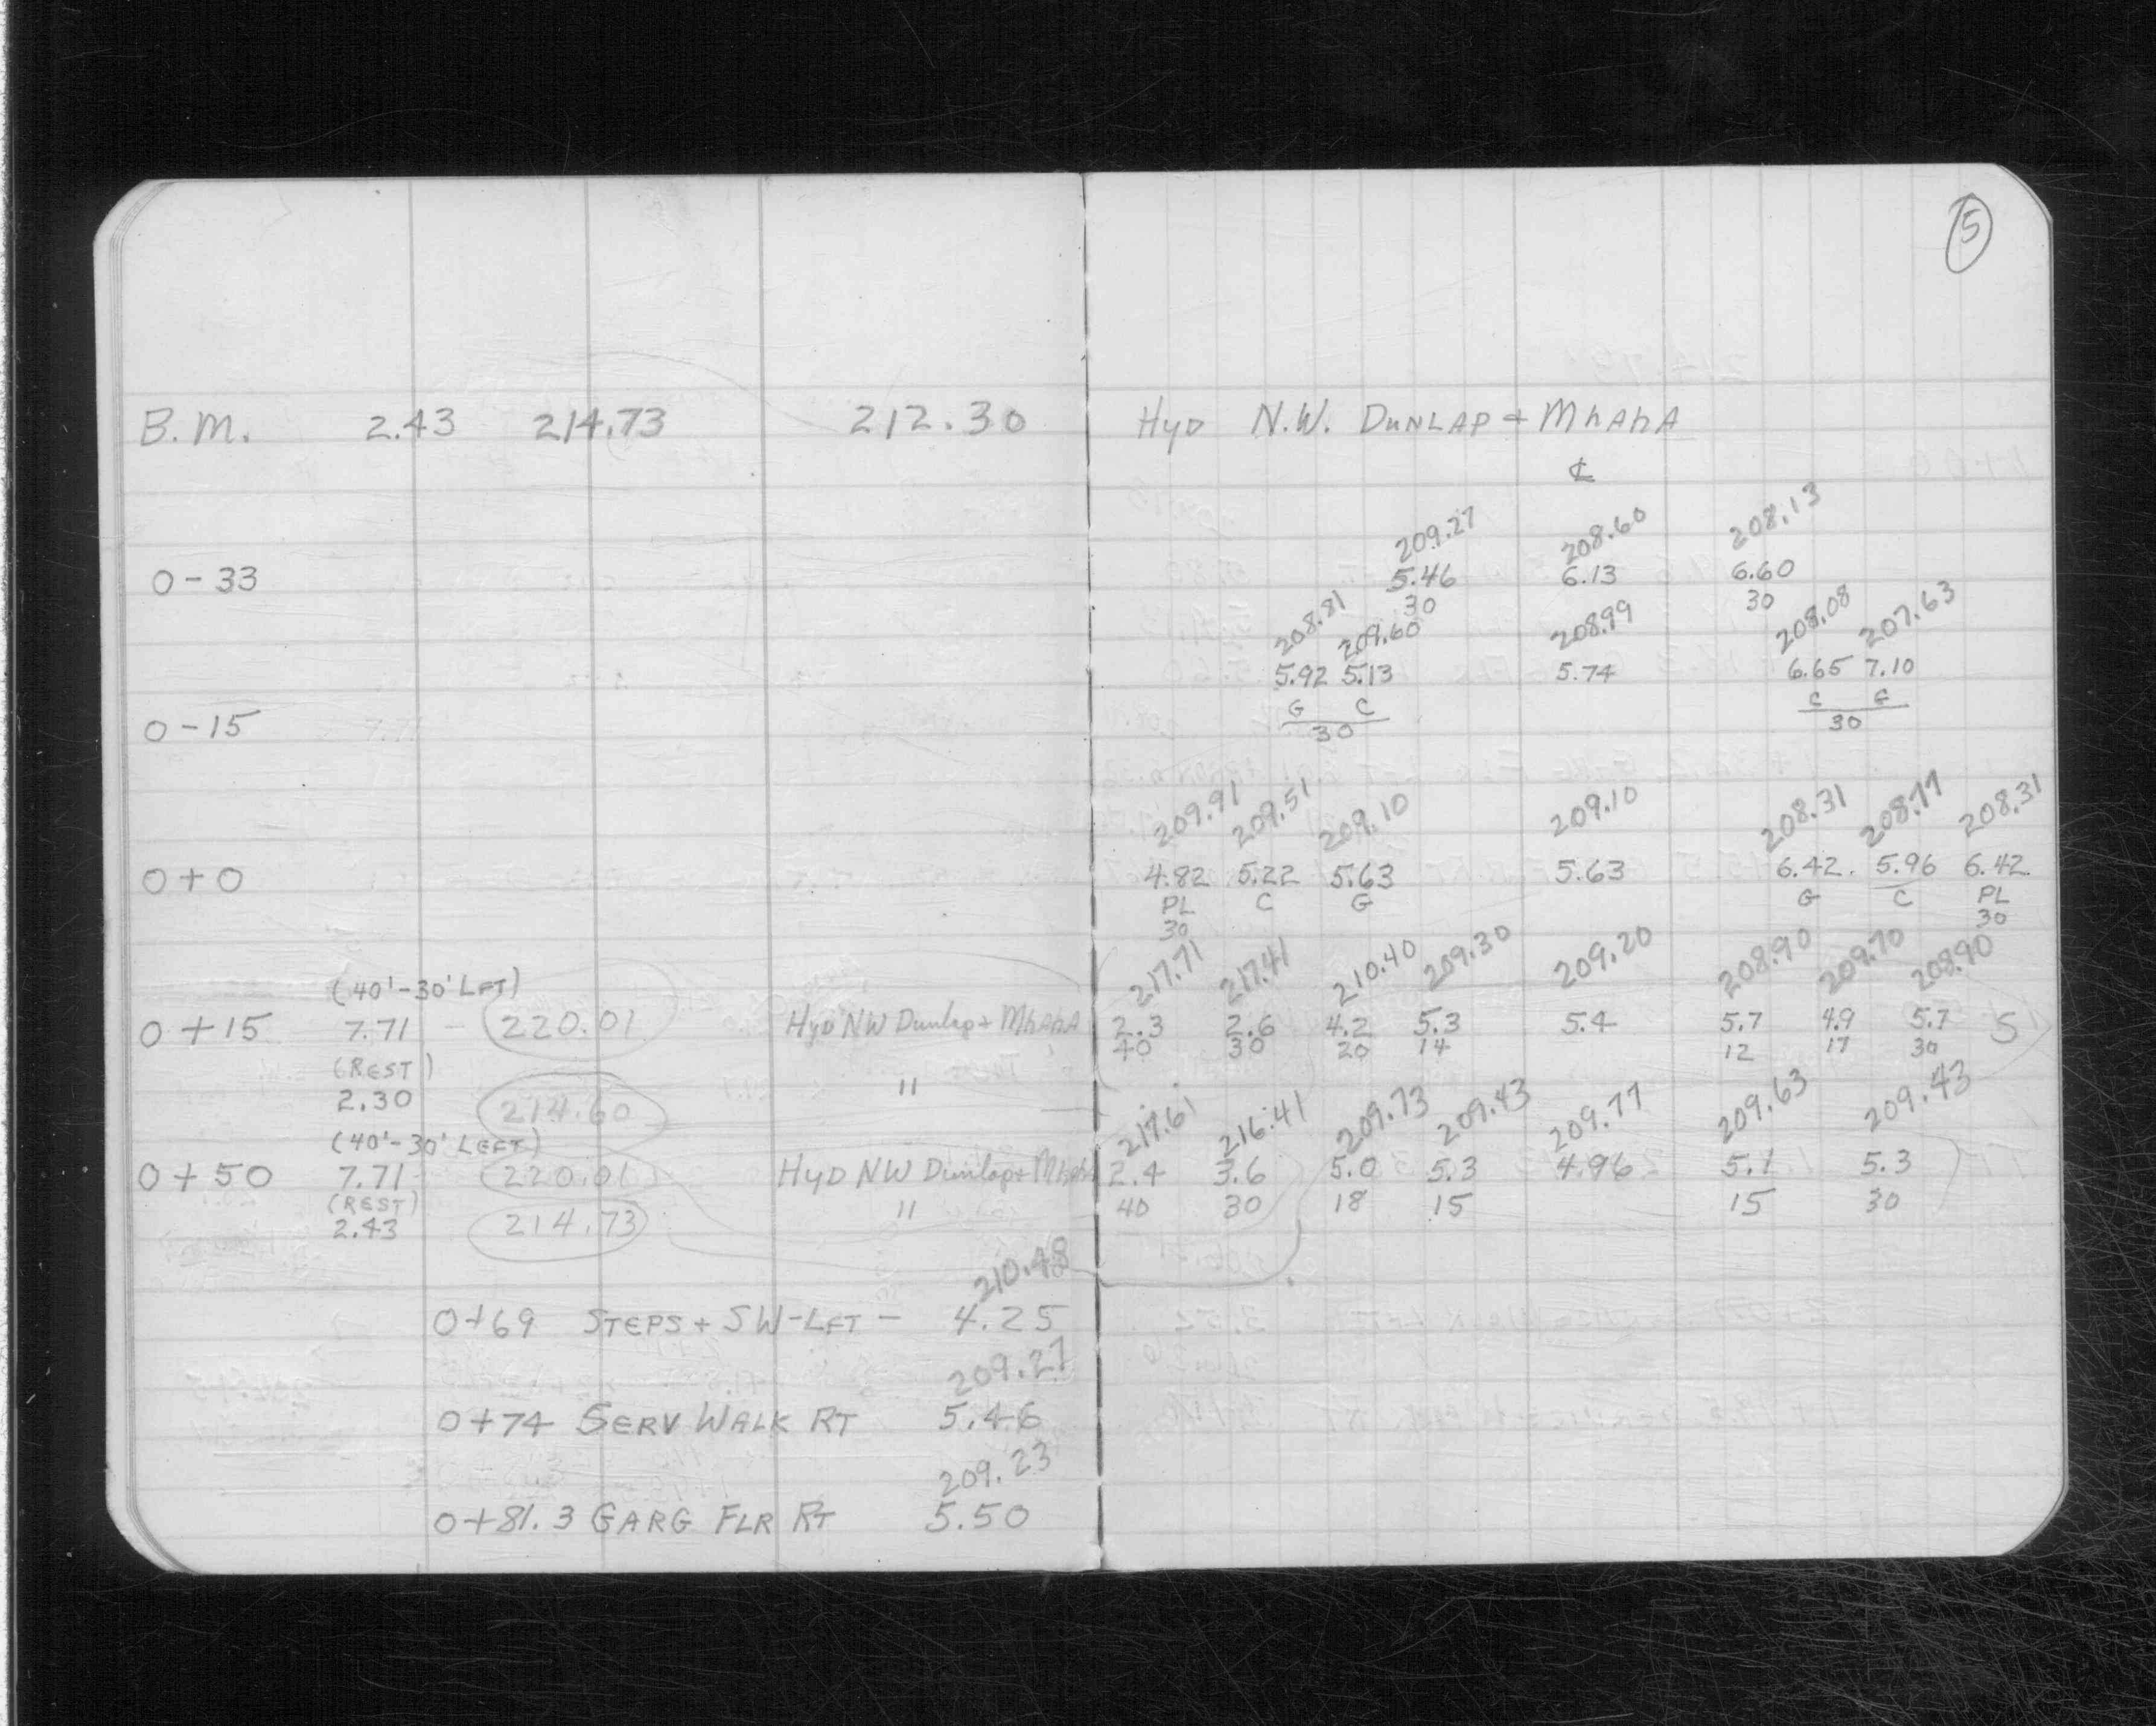 5
B.M. 2.43 214.73 212.30 HYD N.W. DUNLAP + MhAhA
℄
209.27 208.60 208.13
0-33 5.46 6.13 6.60
30 30
208.81 209.60 208.99 208.08 207.63
5.92 5.13 5.74 6.65 7.10
G C C G
0-15 30 30
209.91 209.51 209.10 209.10 208.31 208.77 208.31
0+0 4.82 5.22 5.63 5.63 6.42 5.96 6.42
PL C G G C PL
30 30
217.71 217.41 210.40 209.30 209.20 208.90 209.70 208.90
(40'-30' LFT)
0+15 7.71 - 220.01 HYD NW Dunlap + MhAhA 2.3 2.6 4.2 5.3 5.4 5.7 4.9 5.7 S
40 30 20 14 12 17 30
(REST)
2.30 214.60 "
217.61 216.41 209.73 209.43 209.77 209.63 209.43
(40'-30' LEFT)
0+50 7.71 220.01 HYD NW Dunlap + MhAhA 2.4 3.6 5.0 5.3 4.96 5.1 5.3
(REST)
2.43 214.73 " 40 30 18 15 15 30
210.48
0+69 STEPS + SW-LFT - 4.25
209.27
0+74 SERV WALK RT 5.46
209.23
0+81.3 GARG FLR RT 5.50